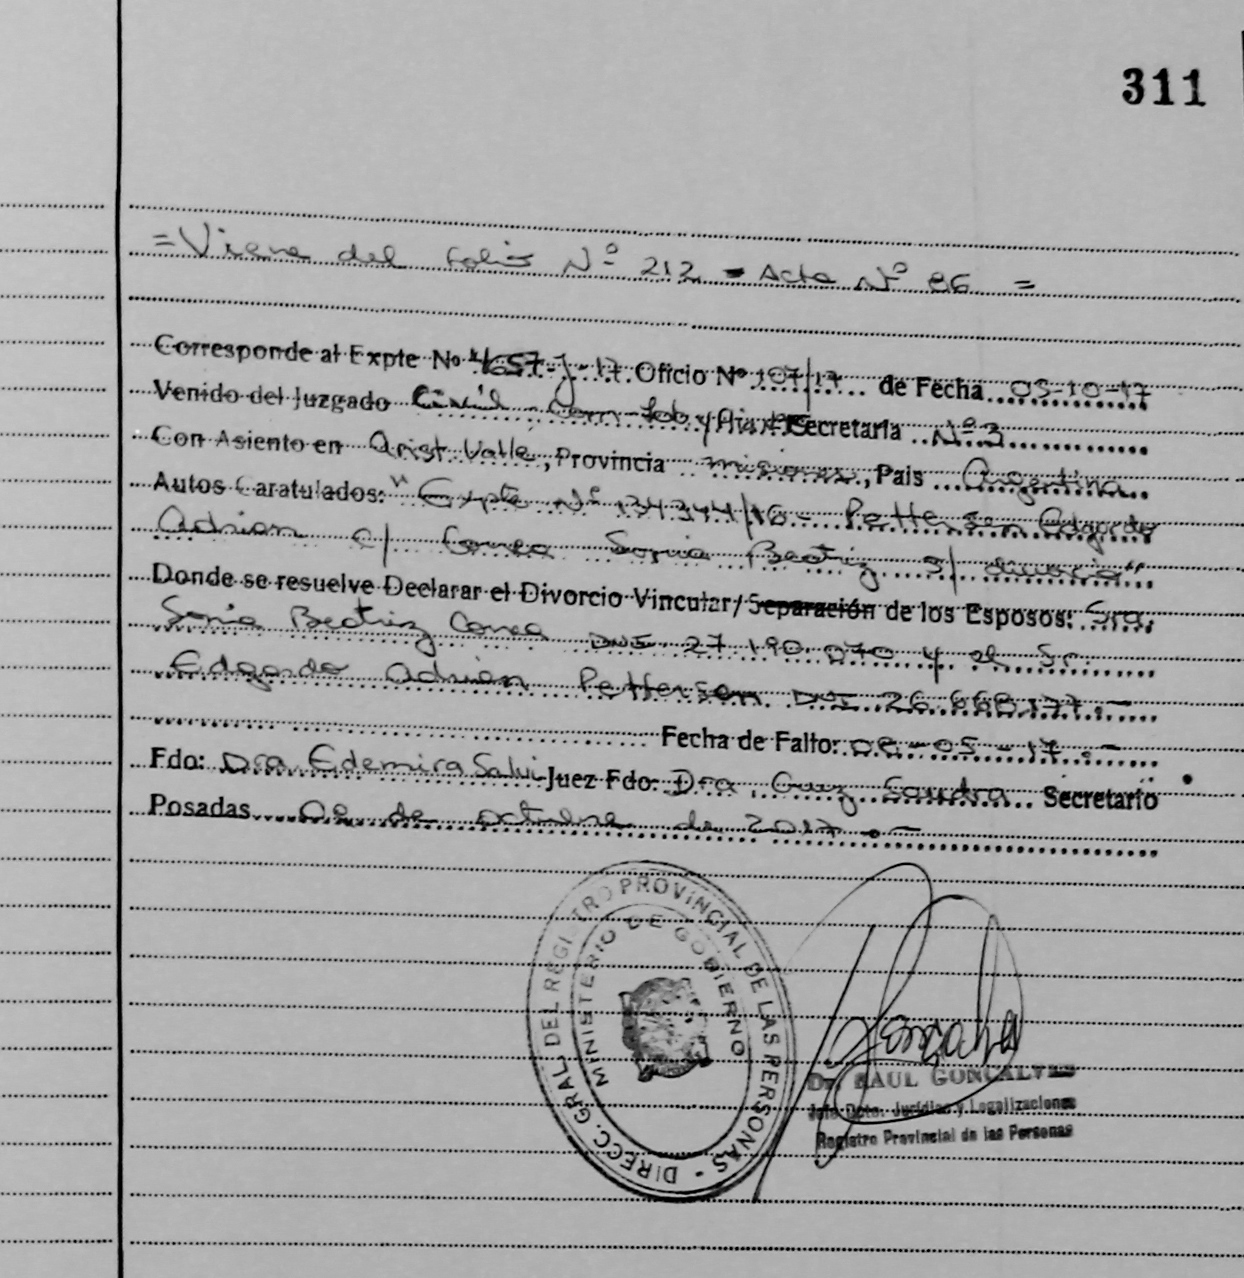 311
=Viene del folio Nº 212 = Acta Nº 86 =
Corresponde al Expte Nº 4657-J-17 Oficio Nº 107/17 de Fecha 05-10-17
Venido del Juzgado Civil Com Lab y Flia Secretaria Nº 3
Con Asiento en Arist. Valle, Provincia misiones, Pais Argentina
Autos Caratulados: "Expte Nº 134344/16 - Pettersen Edgardo
Adrian c/ Correa Sonia Beatriz s/ divorcio"
Donde se resuelve Declarar el Divorcio Vincular/Separación de los Esposos: Sra.
Sonia Beatriz Correa DNI 27.190.070 y el Sr.
Edgardo Adrian Pettersen DNI 26.668.177.-
Fecha de Fallo: 08-05-17.-
Fdo: Dra Edemira Salvi Juez Fdo: Dra Sandra Secretario
Posadas 08 de octubre de 2017.-
DIRECC. GRAL DEL REGISTRO PROVINCIAL DE LAS PERSONAS -
MINISTERIO DE GOBIERNO
Dr. RAUL GONCALVES
Jefe Dpto. Jurídico y Legalizaciones
Registro Provincial de las Personas